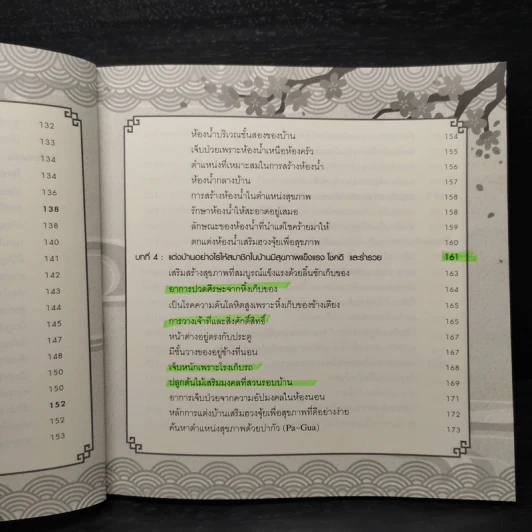 132
133
134
134
136
138
138
140
141
141
143
145
147
148
150
150
152
152
153
ห้องน้ำบริเวณชั้นสองของบ้าน 154
เจ็บป่วยเพราะห้องน้ำเหนือห้องครัว 155
ตำแหน่งที่เหมาะสมในการสร้างห้องน้ำ 156
ห้องน้ำกลางบ้าน 157
การสร้างห้องน้ำในตำแหน่งสุขภาพ 158
รักษาห้องน้ำให้สะอาดอยู่เสมอ 158
ลักษณะของห้องน้ำที่นำแต่โชคร้ายมาให้ 159
ตกแต่งห้องน้ำเสริมฮวงจุ้ยเพื่อสุขภาพ 160
บทที่ 4 : แต่งบ้านอย่างไรให้สมาชิกในบ้านมีสุขภาพแข็งแรง โชคดี และร่ำรวย 161
เสริมสร้างสุขภาพที่สมบูรณ์แข็งแรงด้วยลิ้นชักเก็บของ 163
อาการปวดศีรษะจากหิ้งเก็บของ 164
เป็นโรคความดันโลหิตสูงเพราะหิ้งเก็บของข้างเตียง 165
การวางเจ้าที่และสิ่งศักดิ์สิทธิ์ 165
หน้าต่างอยู่ตรงกับประตู 167
มีชั้นวางของอยู่ข้างที่นอน 167
เจ็บหนักเพราะโรงเก็บรถ 168
ปลูกต้นไม้เสริมมงคลที่สวนรอบบ้าน 169
อาการเจ็บป่วยจากความอัปมงคลในห้องนอน 171
หลักการแต่งบ้านเสริมฮวงจุ้ยเพื่อสุขภาพที่ดีอย่างง่าย 172
ค้นหาตำแหน่งสุขภาพด้วยปากัว (Pa-Gua) 173